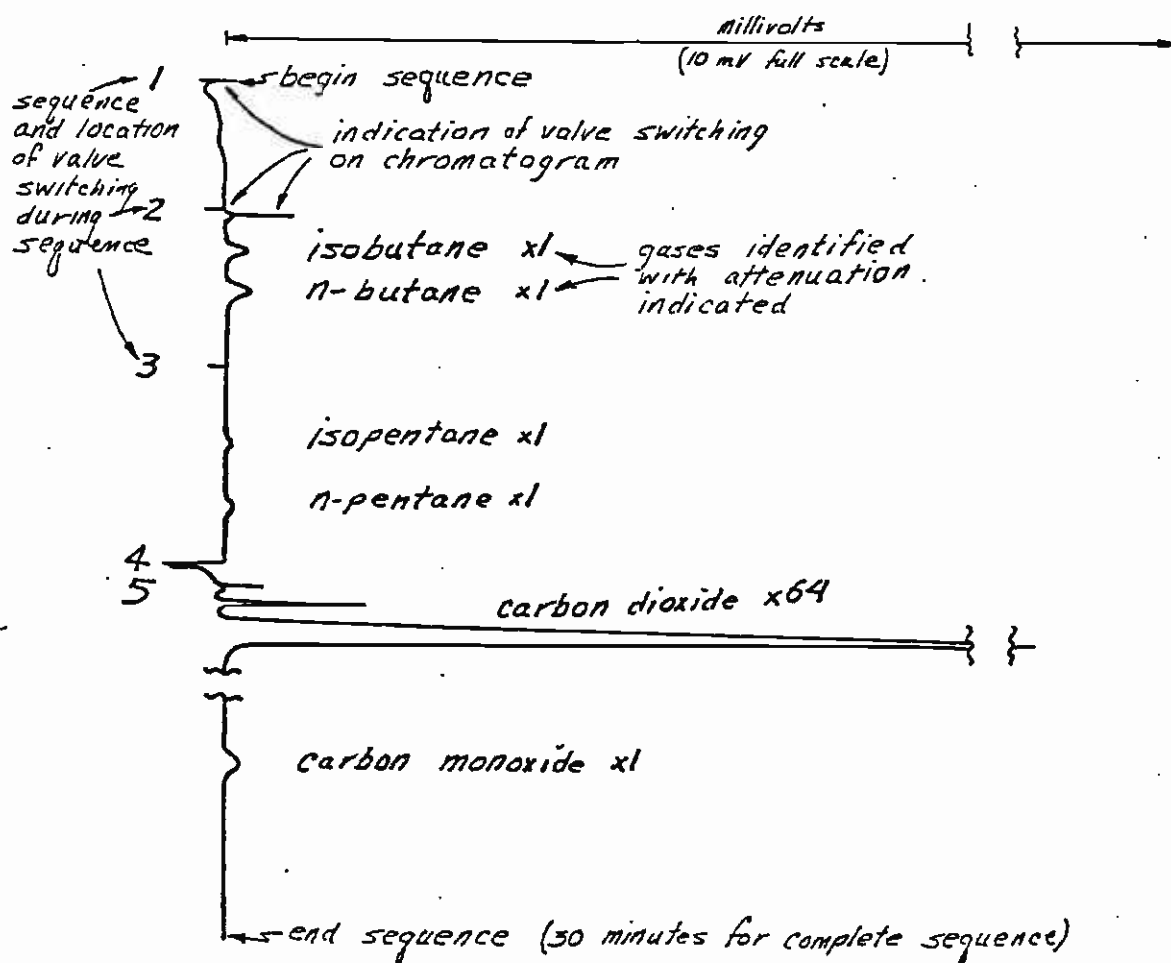 millivolts
(10 mV full scale)
1
begin sequence
sequence
and location
of valve
switching
during
sequence
indication of valve switching
on chromatogram
2
isobutane x1
n-butane x1
gases identified
with attenuation
indicated
3
isopentane x1
n-pentane x1
4
5
carbon dioxide x64
carbon monoxide x1
end sequence (30 minutes for complete sequence)